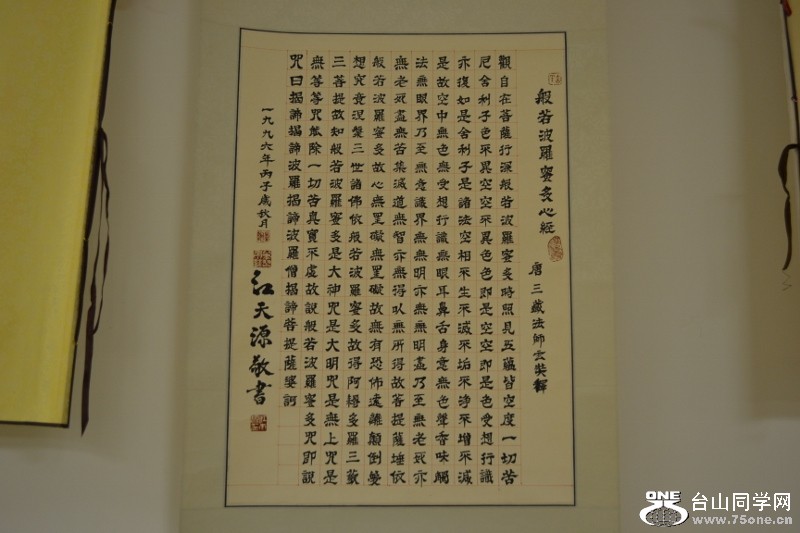 般若波羅蜜多心經
唐三藏法師玄奘譯
觀自在菩薩行深般若波羅蜜多時照見五蘊皆空度一切苦
厄舍利子色不異空空不異色色即是空空即是色受想行識
亦復如是舍利子是諸法空相不生不滅不垢不淨不增不減
是故空中無色無受想行識無眼耳鼻舌身意無色聲香味觸
法無眼界乃至無意識界無無明亦無無明盡乃至無老死亦
無老死盡無苦集滅道無智亦無得以無所得故菩提薩埵依
般若波羅蜜多故心無罣礙無罣礙故無有恐怖遠離顛倒夢
想究竟涅槃三世諸佛依般若波羅蜜多故得阿耨多羅三藐
三菩提故知般若波羅蜜多是大神咒是大明咒是無上咒是
無等等咒能除一切苦真實不虛故說般若波羅蜜多咒即說
咒曰揭諦揭諦波羅揭諦波羅僧揭諦菩提薩婆訶
一九九六年丙子歲秋月
江天源敬書
ONE
台山同学网
www.75one.cn